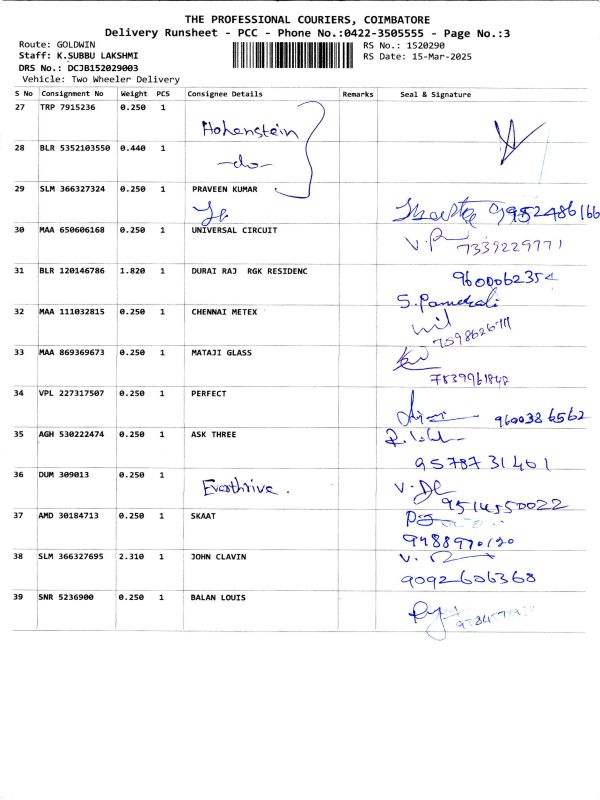 THE PROFESSIONAL COURIERS, COIMBATORE
Delivery Runsheet - PCC - Phone No.:0422-3505555 - Page No.:3
Route: GOLDWIN
RS No.: 1520290
Staff: K.SUBBU LAKSHMI
RS Date: 15-Mar-2025
DRS No.: DCJB152029003
Vehicle: Two Wheeler Delivery
S No Consignment No Weight PCS Consignee Details Remarks Seal & Signature
27 TRP 7915236 0.250 1
Hohenstein
28 BLR 5352103550 0.440 1
-do-
29 SLM 366327324 0.250 1 PRAVEEN KUMAR
9952486166
30 MAA 650606168 0.250 1 UNIVERSAL CIRCUIT
V.P 7339229771
31 BLR 120146786 1.820 1 DURAI RAJ RGK RESIDENC
9600062354
32 MAA 111032815 0.250 1 CHENNAI METEX
33 MAA 869369673 0.250 1 MATAJI GLASS
34 VPL 227317507 0.250 1 PERFECT
9600386562
35 AGH 530222474 0.250 1 ASK THREE
9578731401
36 DUM 309013 0.250 1
Everthrive.
9514550022
37 AMD 30184713 0.250 1 SKAAT
9488970130
38 SLM 366327695 2.310 1 JOHN CLAVIN
9092606368
39 SNR 5236900 0.250 1 BALAN LOUIS